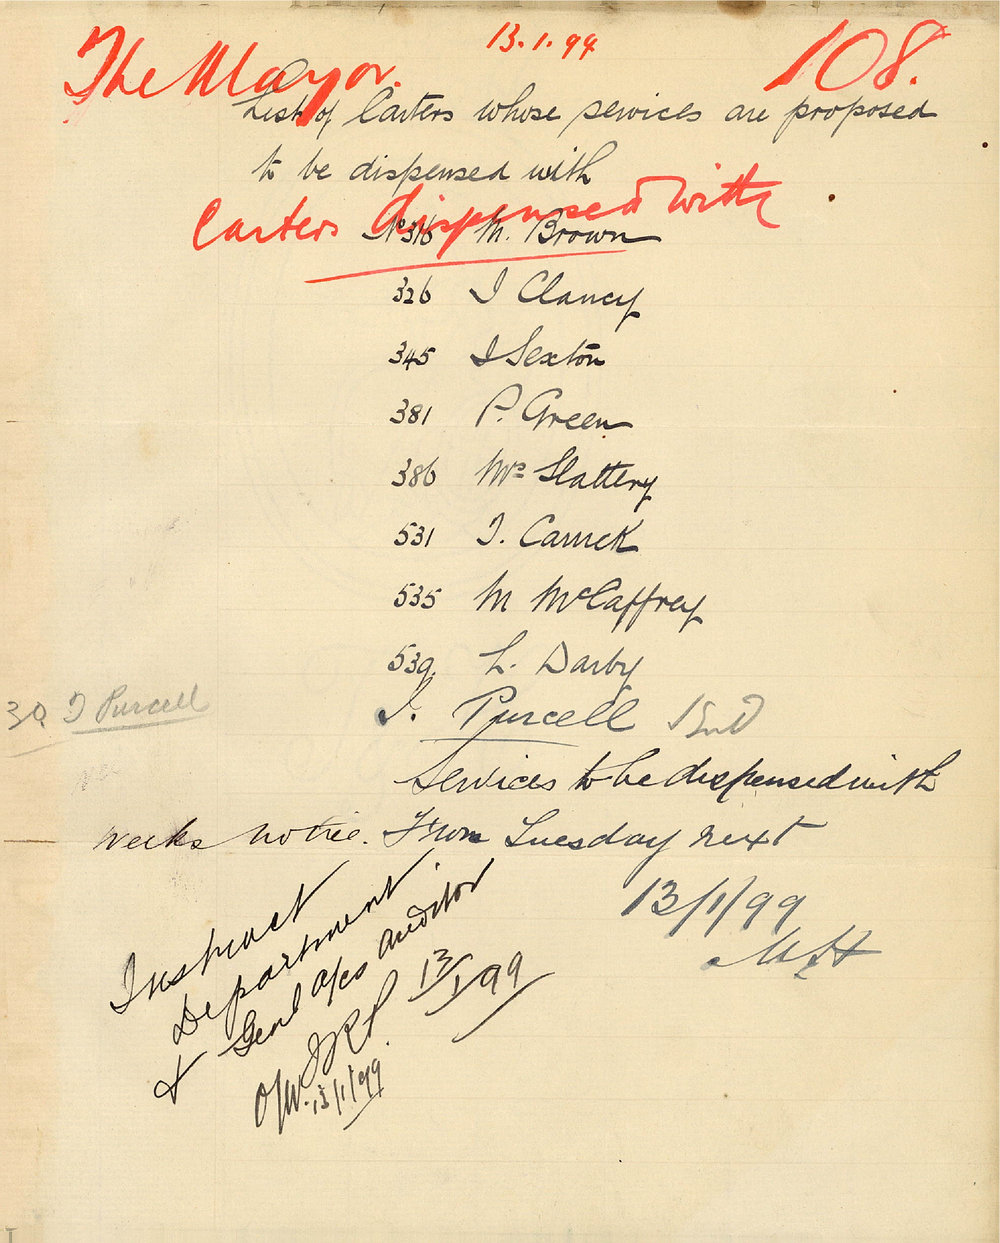 13.1.99
The Mayor. 108.
List of Carters whose services are proposed
to be dispensed with
Carters dispensed with
No 316 M. Brown
326 J Clancy
345 J Sexton
381 P. Green
386 Mrs Slattery
531 J. Carrick
535 M McCaffrey
539. L. Darby
30 J Purcell
J. Purcell
Services to be dispensed with
weeks notice. From Tuesday next
13/1/99
Instruct
Department
& Genl a/cs auditor
JRP 13/1/99
O/W. 13/1/99